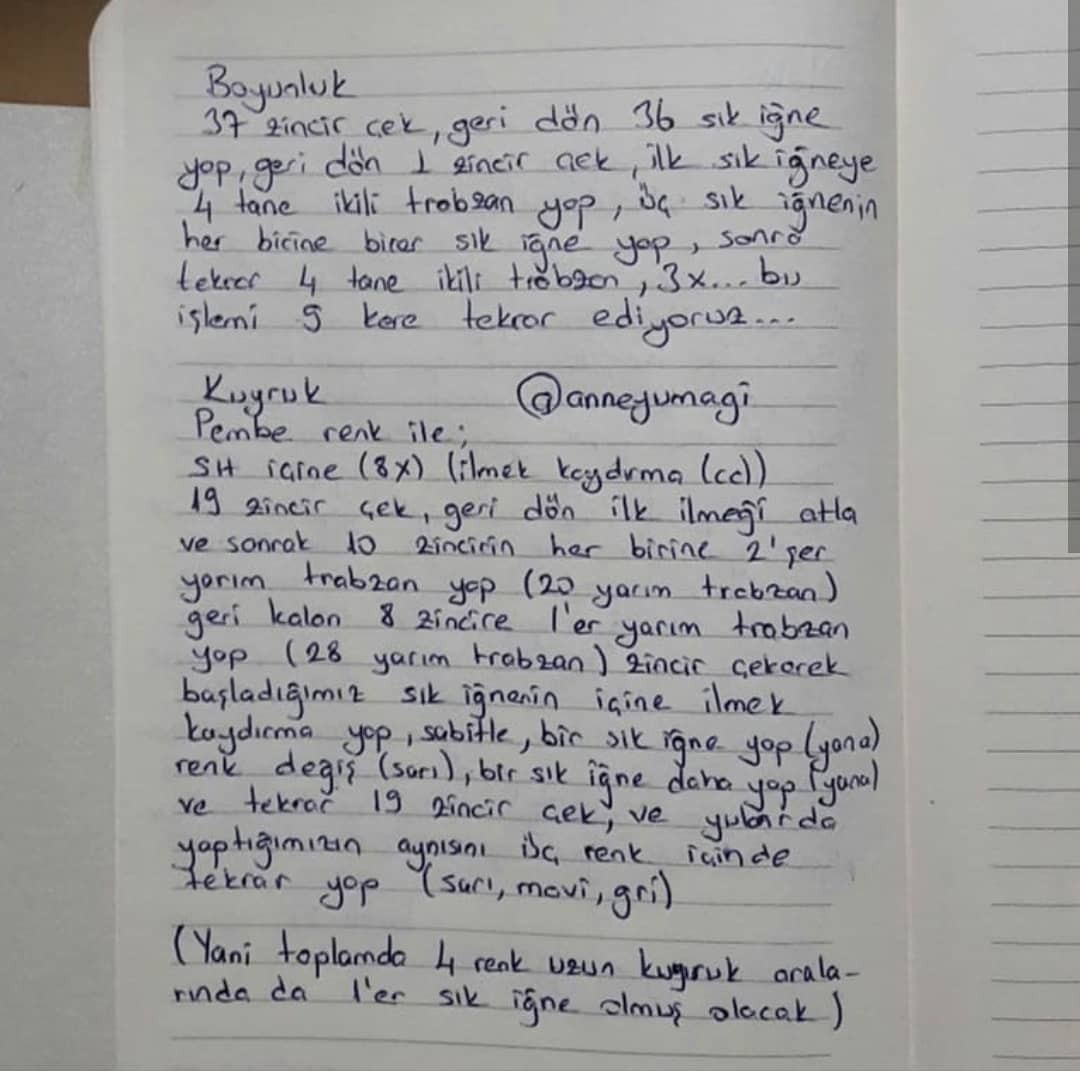 Boyunluk
37 zincir çek, geri dön 36 sık iğne
yap, geri dön 1 zincir çek, ilk sık iğneye
4 tane ikili trabzan yap, üç sık iğnenin
her birine birer sık iğne yap, sonra
tekrar 4 tane ikili trabzan, 3x... bu
işlemi 9 kere tekrar ediyoruz...
Kuyruk @anneyumagi
Pembe renk ile;
SH içine (8x) (ilmek kaydırma (cc))
19 zincir çek, geri dön ilk ilmeği atla
ve sonrak 10 zincirin her birine 2'şer
yarım trabzan yap (20 yarım trabzan)
geri kalan 8 zincire 1'er yarım trabzan
yap (28 yarım trabzan) zincir çekerek
başladığımız sık iğnenin içine ilmek
kaydırma yap, sabitle, bir sık iğne yap (yana)
renk değiş (sarı), bir sık iğne daha yap (yana)
ve tekrar 19 zincir çek, ve yukarıda
yaptığımızın aynısını üç renk içinde
tekrar yap (sarı, mavi, gri)
(Yani toplamda 4 renk uzun kuyruk arala-
rında da 1'er sık iğne olmuş olacak)